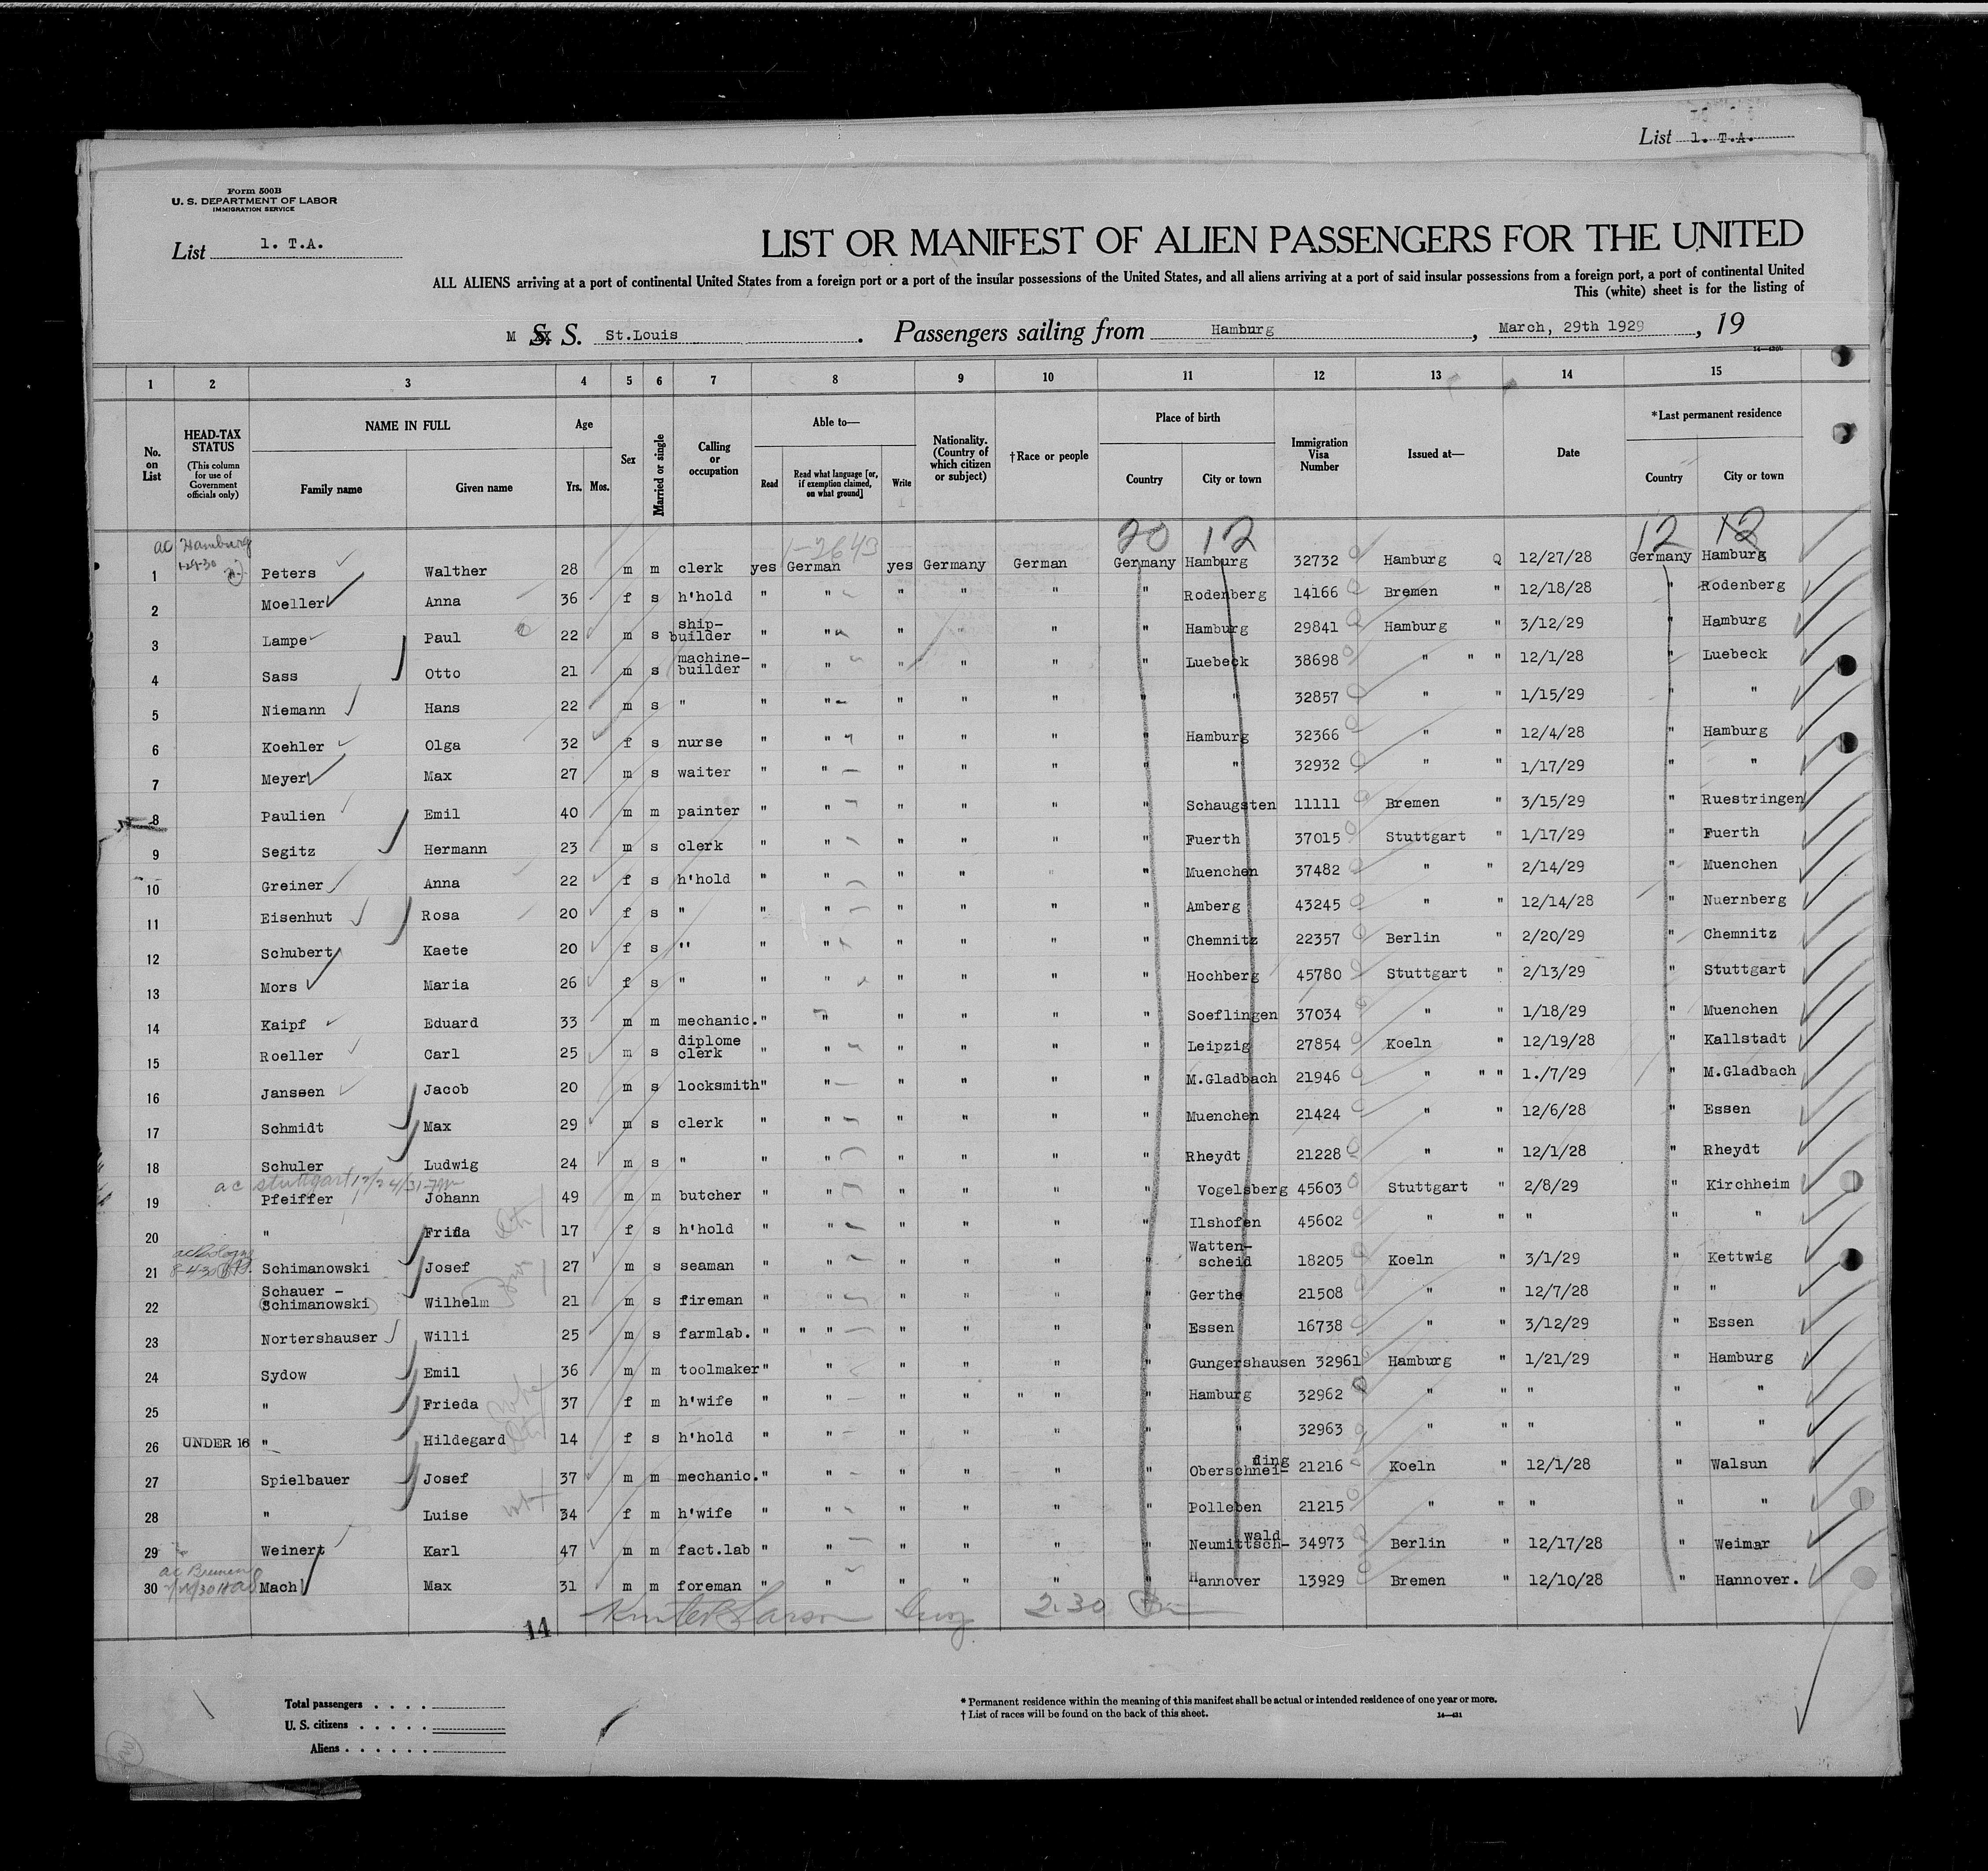 List 1. T.A.
Form 500B
U. S. DEPARTMENT OF LABOR
IMMIGRATION SERVICE
List 1. T.A.
LIST OR MANIFEST OF ALIEN PASSENGERS FOR THE UNITED
ALL ALIENS arriving at a port of continental United States from a foreign port or a port of the insular possessions of the United States, and all aliens arriving at a port of said insular possessions from a foreign port, a port of continental United
This (white) sheet is for the listing of
M S. S. St.Louis . Passengers sailing from Hamburg , March, 29th 1929 , 19
1 2 3 4 5 6 7 8 9 10 11 12 13 14 15
No. on List
HEAD-TAX STATUS
(This column for use of Government officials only)
NAME IN FULL
Family name Given name
Age
Yrs. Mos.
Sex
Married or single
Calling or occupation
Able to—
Read
Read what language [or, if exemption claimed, on what ground]
Write
Nationality. (Country of which citizen or subject)
†Race or people
Place of birth
Country City or town
Immigration Visa Number
Issued at—
Date
*Last permanent residence
Country City or town
20 12 12 12
ac Hamburg 1-2643
1-29-30
1 Peters Walther 28 m m clerk yes German yes Germany German Germany Hamburg 32732 Hamburg Q 12/27/28 Germany Hamburg
2 Moeller Anna 36 f s h'hold " " " " " " Rodenberg 14166 Bremen " 12/18/28 " Rodenberg
3 Lampe Paul 22 m s ship-builder " " " " " " Hamburg 29841 Hamburg " 3/12/29 " Hamburg
4 Sass Otto 21 m s machine-builder " " " " " " Luebeck 38698 " " " 12/1/28 " Luebeck
5 Niemann Hans 22 m s " " " " " " " " 32857 " " 1/15/29 " "
6 Koehler Olga 32 f s nurse " " " " " " Hamburg 32366 " " 12/4/28 " Hamburg
7 Meyer Max 27 m s waiter " " " " " " " 32932 " " 1/17/29 " "
8 Paulien Emil 40 m m painter " " " " " " Schaugsten 11111 Bremen " 3/15/29 " Ruestringen
9 Segitz Hermann 23 m s clerk " " " " " " Fuerth 37015 Stuttgart " 1/17/29 " Fuerth
10 Greiner Anna 22 f s h'hold " " " " " " Muenchen 37482 " " 2/14/29 " Muenchen
11 Eisenhut Rosa 20 f s " " " " " " " Amberg 43245 " " 12/14/28 " Nuernberg
12 Schubert Kaete 20 f s " " " " " " " Chemnitz 22357 Berlin " 2/20/29 " Chemnitz
13 Mors Maria 26 f s " " " " " " " Hochberg 45780 Stuttgart " 2/13/29 " Stuttgart
14 Kaipf Eduard 33 m m mechanic. " " " " " " Soeflingen 37034 " " 1/18/29 " Muenchen
15 Roeller Carl 25 m s diplome clerk " " " " " " Leipzig 27854 Koeln " 12/19/28 " Kallstadt
16 Janseen Jacob 20 m s locksmith " " " " " " M.Gladbach 21946 " " " 1./7/29 " M.Gladbach
17 Schmidt Max 29 m s clerk " " " " " " Muenchen 21424 " " 12/6/28 " Essen
18 Schuler Ludwig 24 m s " " " " " " " Rheydt 21228 " " 12/1/28 " Rheydt
ac Stuttgart
19 Pfeiffer Johann 49 m m butcher " " " " " " Vogelsberg 45603 Stuttgart " 2/8/29 " Kirchheim
20 " Frida 17 f s h'hold " " " " " " Ilshofen 45602 " " " " "
ac Cologne
8-4-30
21 Schimanowski Josef 27 m s seaman " " " " " " Watten-scheid 18205 Koeln " 3/1/29 " Kettwig
22 Schauer - (Schimanowski) Wilhelm 21 m s fireman " " " " " " Gerthe 21508 " " 12/7/28 " "
23 Nortershauser Willi 25 m s farmlab. " " " " " " " Essen 16738 " " 3/12/29 " Essen
24 Sydow Emil 36 m m toolmaker " " " " " " Gungershausen 32961 Hamburg " 1/21/29 " Hamburg
25 " Frieda 37 f m h'wife " " " " " " " Hamburg 32962 " " " " "
26 UNDER 16 " Hildegard 14 f s h'hold " " " " " " " 32963 " " " " "
27 Spielbauer Josef 37 m m mechanic. " " " " " " Oberschnei-ding 21216 Koeln " 12/1/28 " Walsun
28 " Luise 34 f m h'wife " " " " " " Polleben 21215 " " " " "
29 Weinert Karl 47 m m fact.lab " " " " " " Neumittsch-wald 34973 Berlin " 12/17/28 " Weimar
ac Bremen
30 Mach Max 31 m m foreman " " " " " " Hannover 13929 Bremen " 12/10/28 " Hannover.
2.30
14
Total passengers . . . .
U. S. citizens . . . . .
Aliens . . . . . .
* Permanent residence within the meaning of this manifest shall be actual or intended residence of one year or more.
† List of races will be found on the back of this sheet.
14—431